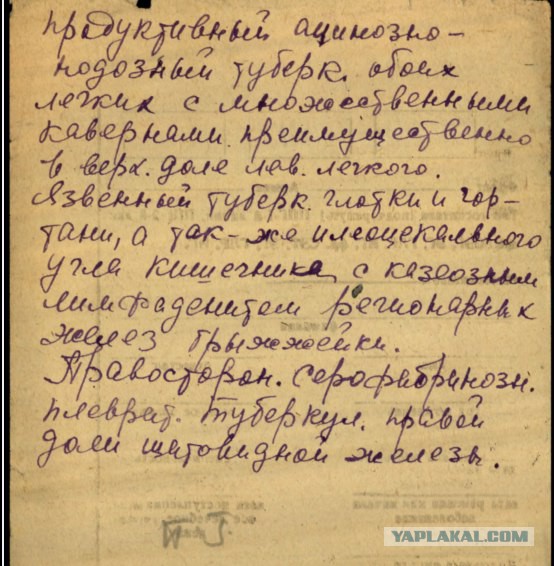 продуктивный ацинозно-
нодозный туберк. обоих
легких с множественными
кавернами преимущественно
в верх. доле лев. легкого.
Язвенный туберк. глотки и гор-
тани, а так-же илеоцекального
угла кишечника с казеозным
лимфаденитом регионарных
желез брыжжейки.
Правосторон. серофибринозн.
плеврит. Туберкул. правой
доли щитовидной железы.
YAPLAKAL.COM